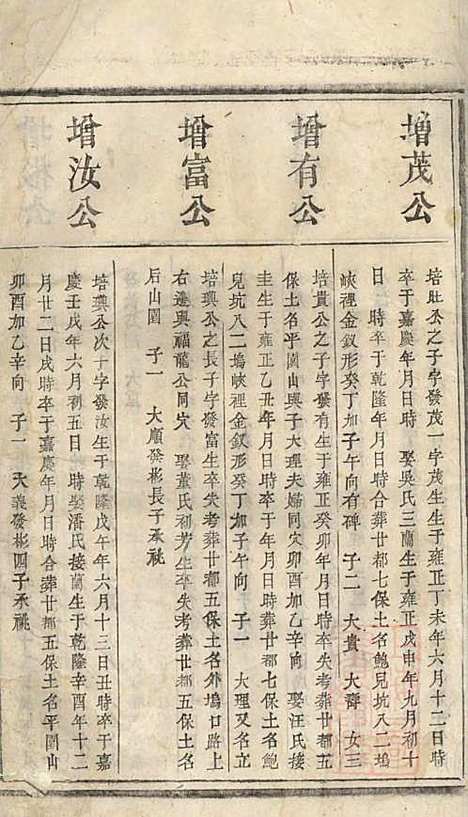 增茂公
培壯公之子字發茂一字茂生生于雍正丁未年六月十二日時
卒于嘉慶年月日時 娶吳氏三蘭生于雍正戊申年九月初十
日 時卒于乾隆年月日時合葬廿都七保土名鮑兒坑八二塢
峽裡金釵形癸丁加子午向有碑 子二 大貴 大齊 女三
增有公
培貴公之子字發有生于雍正癸卯年月日時卒失考葬廿都五
保土名平園山與子大理夫婦同穴卯酉加乙辛向 娶汪氏接
圭生于雍正乙丑年月日時卒于年月日時葬廿都七保土名鮑
兒坑八二塢峽裡金釵形癸丁加子午向 子一 大理又名立
增富公
培興公之長子字發富生卒失考葬廿都五保土名外塢口路上
右邊與福龍公同穴 娶葉氏初芳生卒失考葬廿都五保土名
后山園 子一 大順發彬長子承祧
增汝公
培興公次子字發汝生于乾隆戊午年六月十三日丑時卒于嘉
慶壬戌年六月初五日 時娶潘氏接蘭生于乾隆辛酉年十二
月廿二日戌時卒于嘉慶年月日時合葬廿都五保土名平園山
卯酉加乙辛向 子一 大義發彬四子承祧